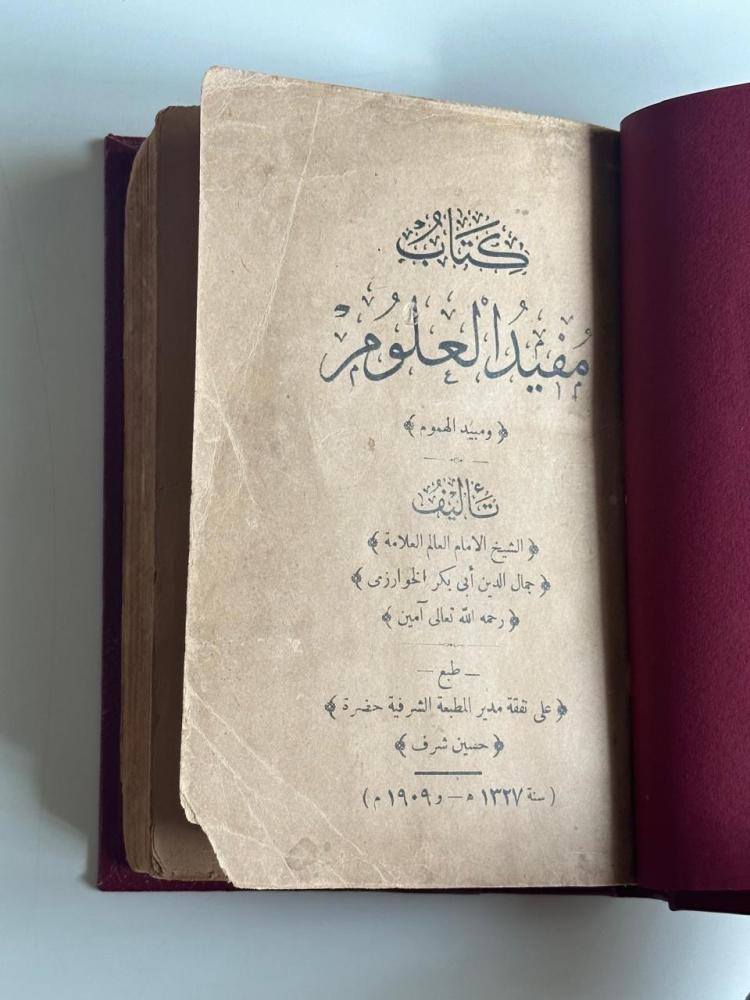 كِتَابُ
مُفِيدُ الْعُلُومْ
﴿ ومبيد الهموم ﴾
تَأْلِيفُ
﴿ الشيخ الامام العالم العلامة ﴾
﴿ جمال الدين أبى بكر الخوارزمى ﴾
﴿ رحمه الله تعالى آمين ﴾
— طبع —
﴿ على نفقة مدير المطبعة الشرفية حضرة ﴾
﴿ حسين شرف ﴾
( سنة ١٣٢٧ ه‍ — و ١٩٠٩ م )